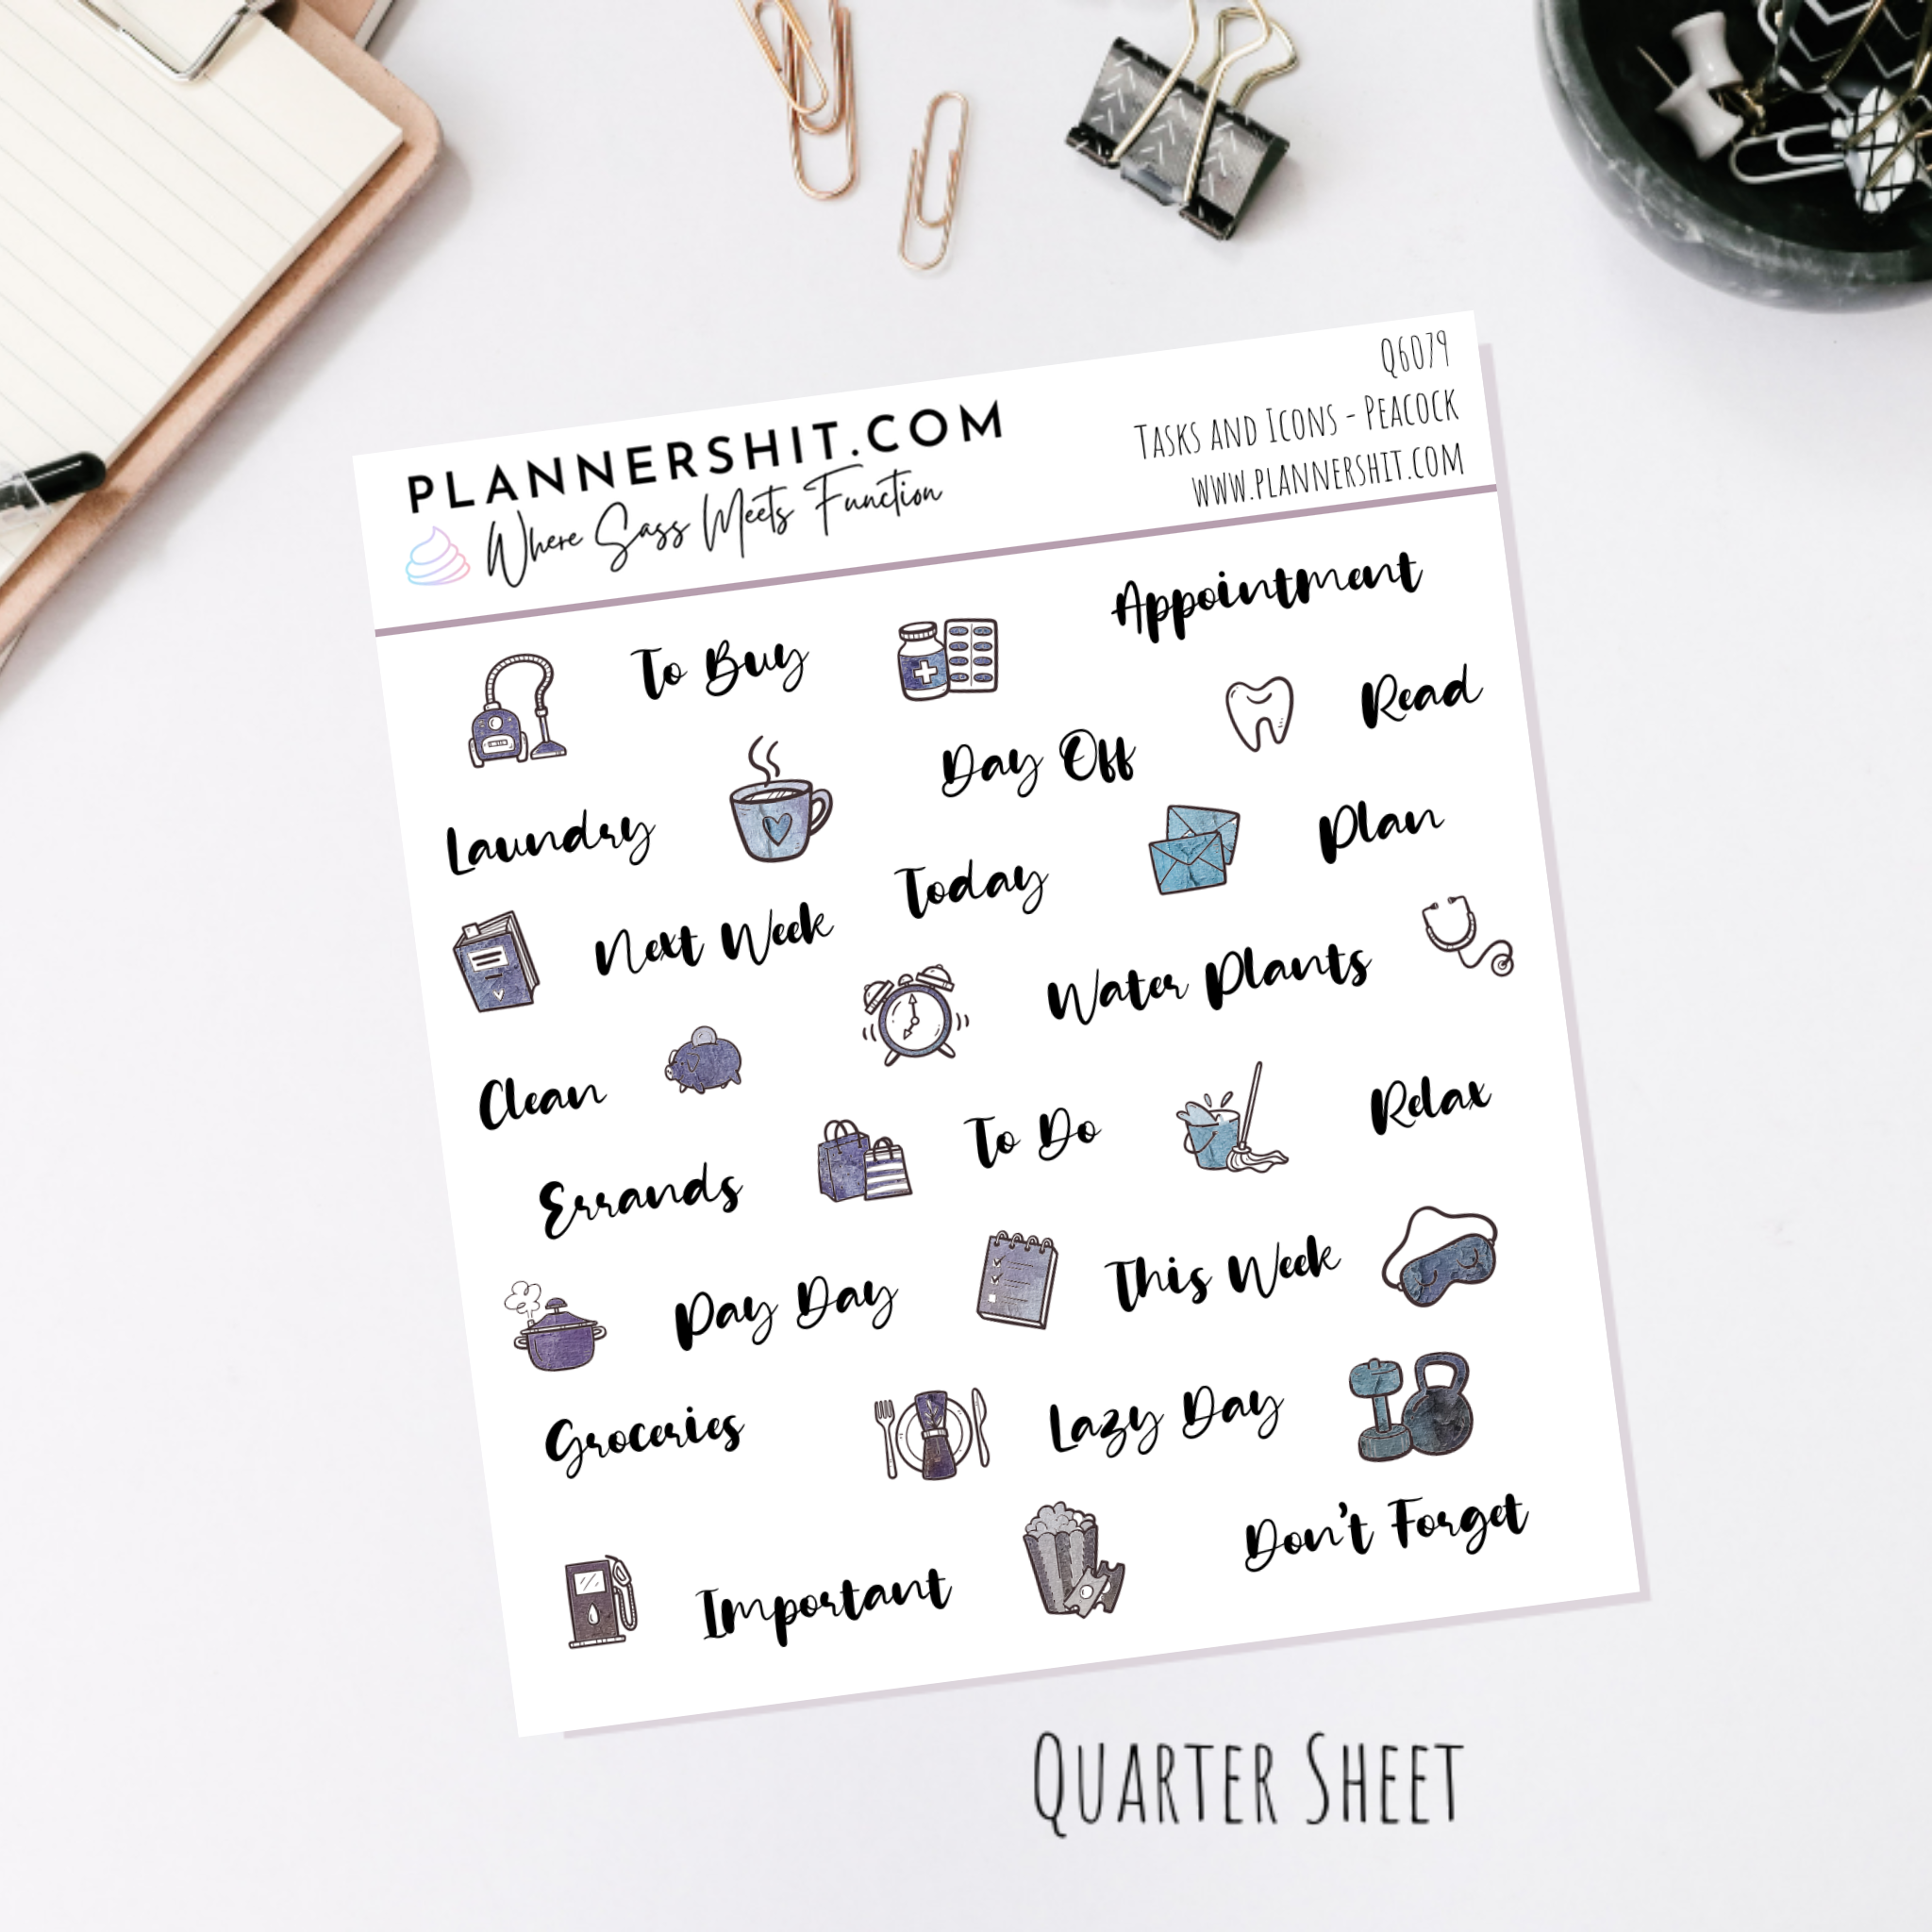 PLANNERSHIT.COM
Where Sass Meets Function
Q6079
Tasks and Icons - Peacock
www.plannershit.com
To Buy
Appointment
Read
Day Off
Laundry
Plan
Today
Next Week
Water Plants
Clean
Relax
To Do
Errands
This Week
Pay Day
Lazy Day
Groceries
Don't Forget
Important
Quarter Sheet